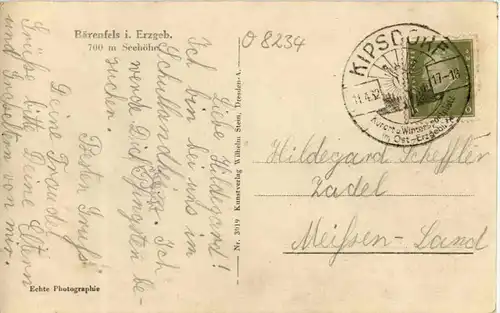 Bärenfels i. Erzgeb.
700 m Seehöhe
O 8234
Liebe Hildegard!
Ich bin bei uns im
Schullandheim. Ich
werde Dich Pfingsten be-
suchen.
Besten Gruß
Deine Traudel
Grüße bitte Deine Eltern
und Großeltern von mir.
Echte Photographie
Nr. 3919 Kunstverlag Wilhelm Stein, Dresden-A.
KIPSDORF
11.4.32
17-18
Kurort u. Wintersport
Ost-Erzgebirge
6
Hildegard Scheffler
Zadel
Meißen-Land